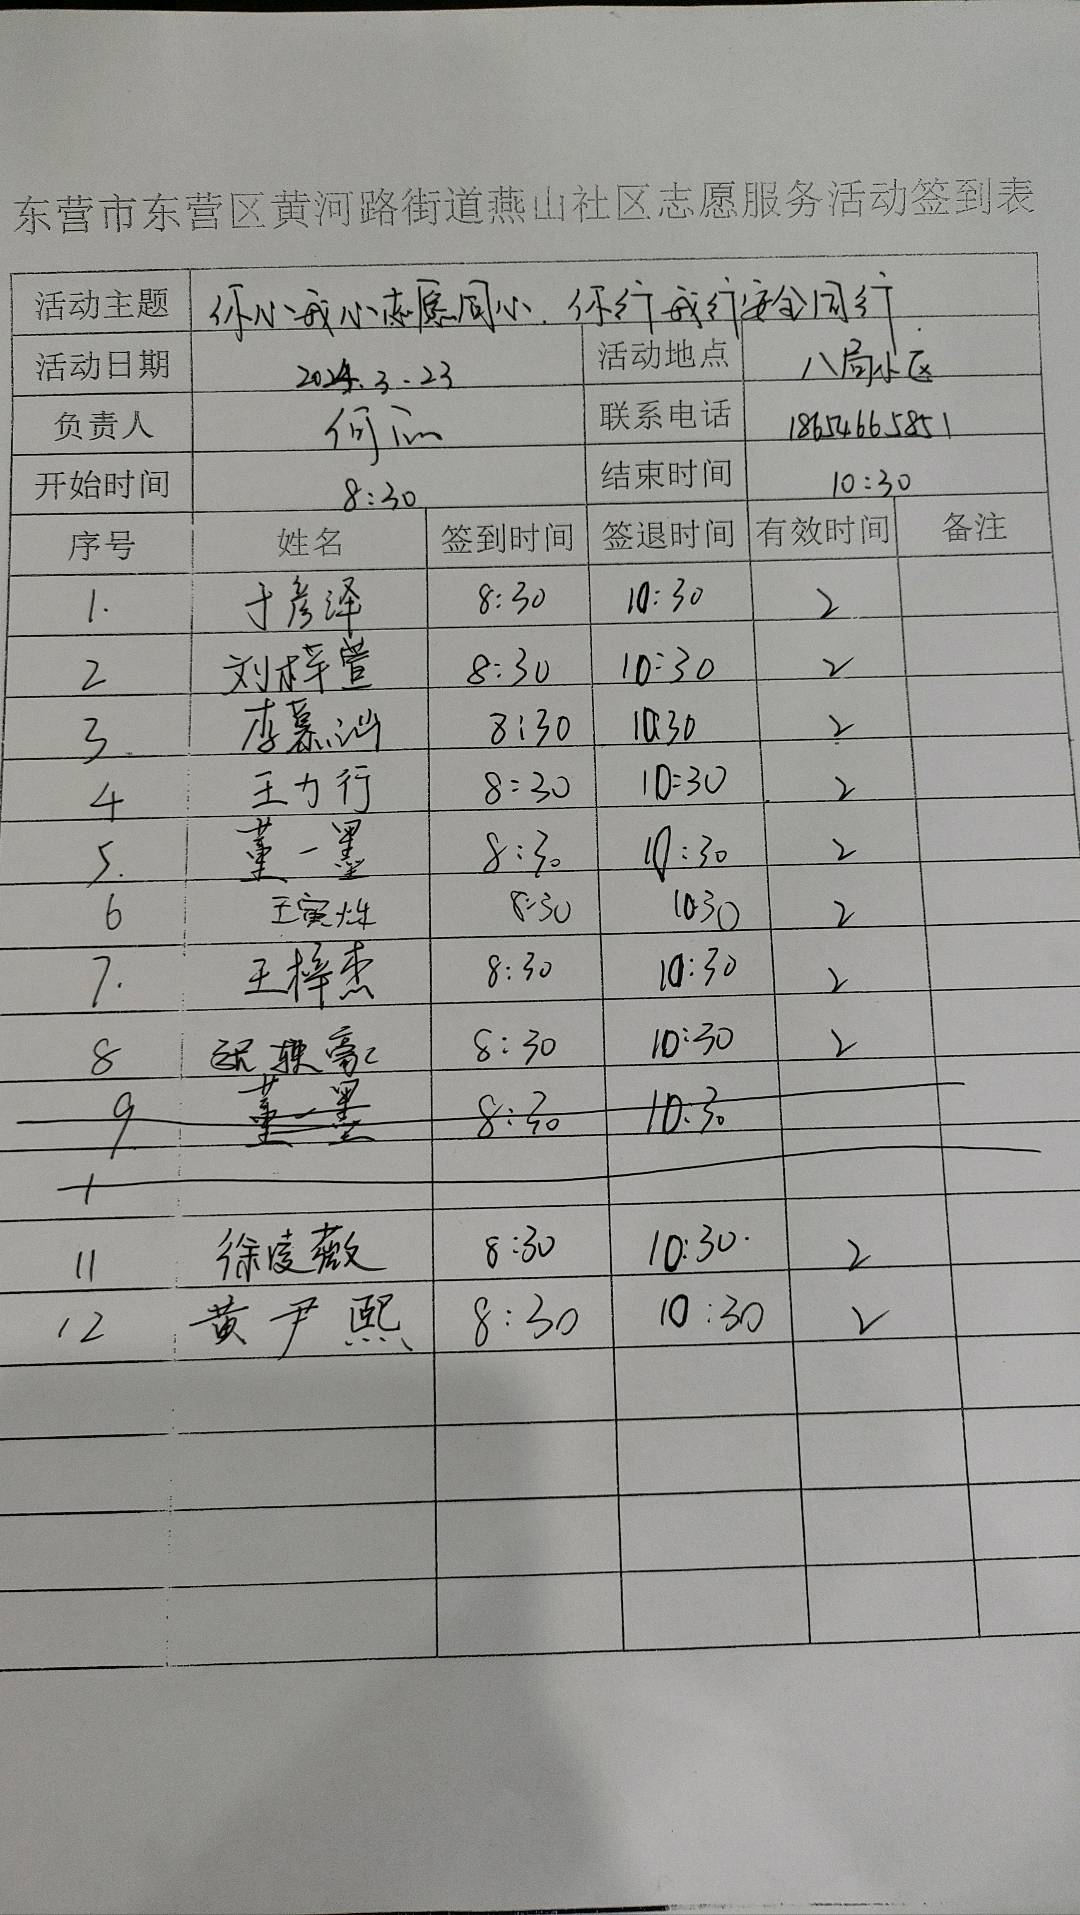 东营市东营区黄河路街道燕山社区志愿服务活动签到表
活动主题 你心我心志愿同心、你行我行安全同行
活动日期 2024.3.23 活动地点 八局小区
负责人 何 联系电话 18654665851
开始时间 8:30 结束时间 10:30
序号 姓名 签到时间 签退时间 有效时间 备注
1. 于彦泽 8:30 10:30 2
2 刘梓萱 8:30 10:30 2
3. 李慕汕 8:30 10:30 2
4 王力行 8:30 10:30 2
5. 董一墨 8:30 10:30 2
6 王寅烁 8:30 10:30 2
7. 王梓杰 8:30 10:30 2
8 8:30 10:30 2
9 董一墨 8:30 10:30
11 徐凌薇 8:30 10:30. 2
12 黄尹熙 8:30 10:30 2